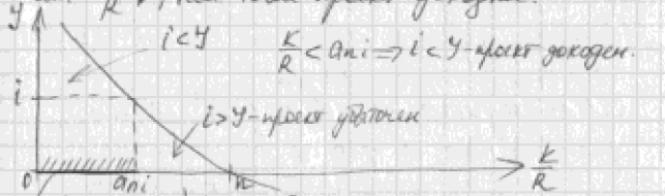 y
i < y
K/R < a_ni ⇒ i < y - проект доходен.
i
i > y - проект убыточен
0
a_ni
n
K/R